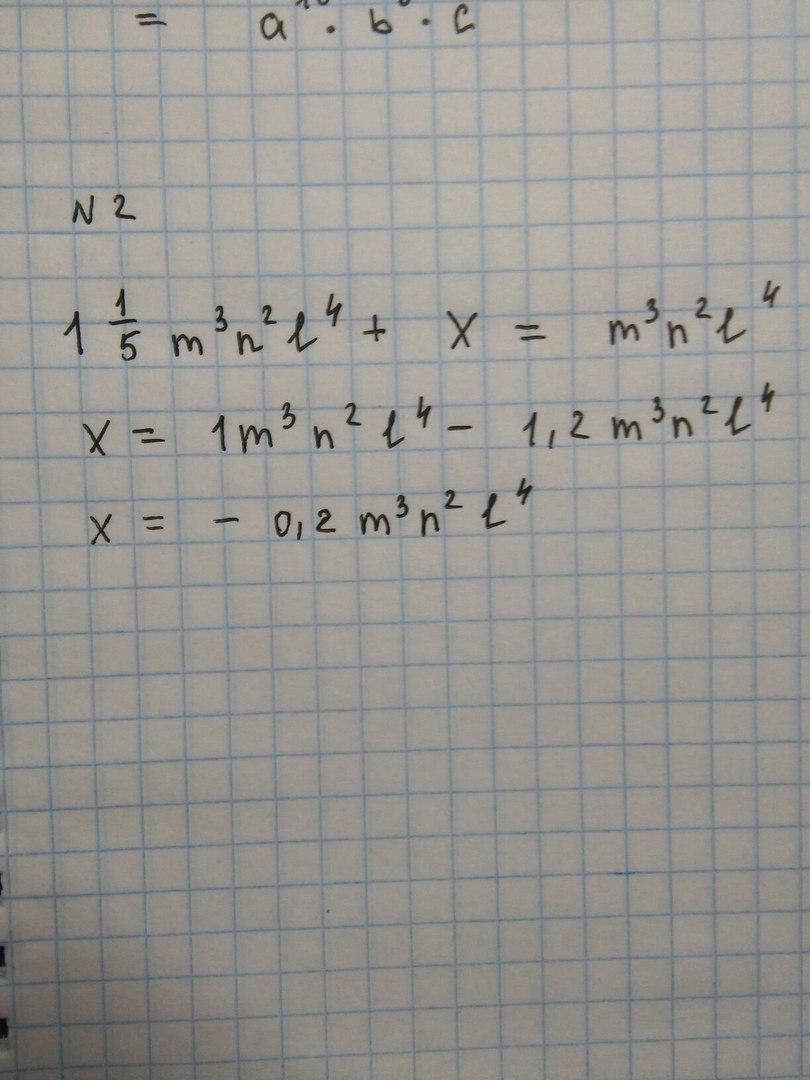 = a · b · c
N 2
1 1/5 m³n²l⁴ + x = m³n²l⁴
x = 1m³n²l⁴ - 1,2 m³n²l⁴
x = - 0,2 m³n²l⁴